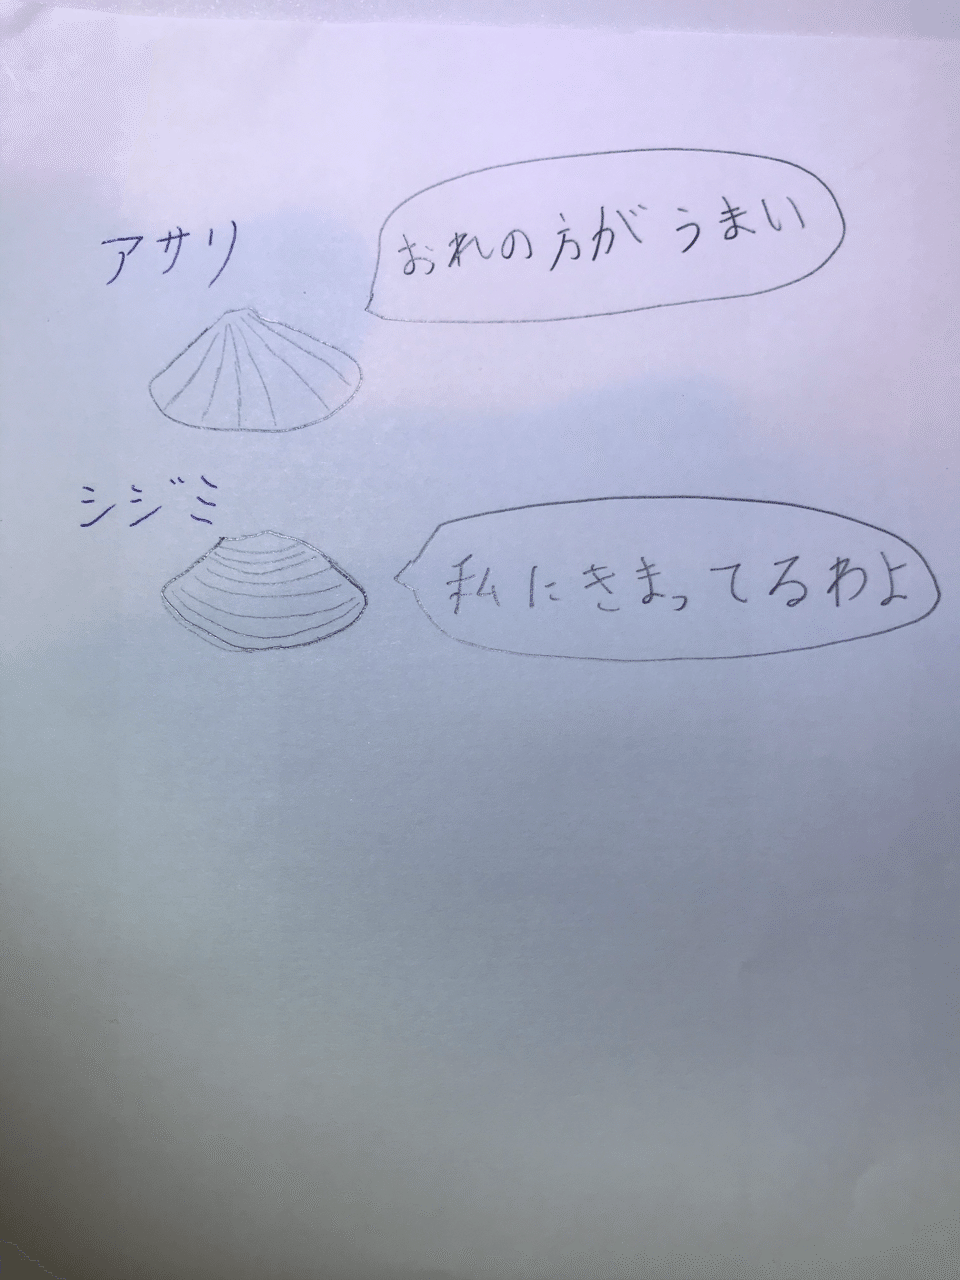 アサリ
おれの方がうまい
シジミ
私にきまってるわよ